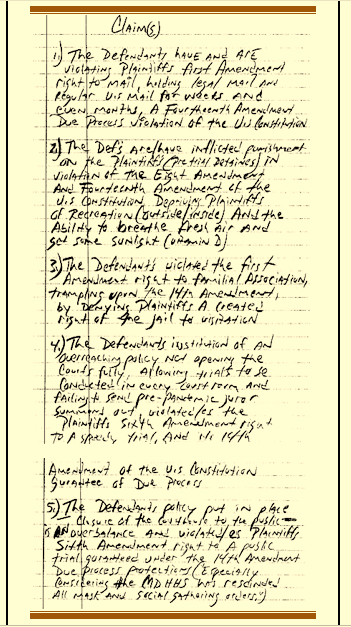 Claim(s)
1.) The Defendants have and are
violating Plaintiffs first Amendment
right to mail, holding legal mail and
regular U.S mail for weeks and
even months, A Fourteenth Amendment
Due Process violation of the U.S Constitution
2.) The Def's are/have inflicted punishment
on the Plaintiffs (Pretrial Detainees) in
violation of the Eight Amendment
And Fourteenth Amendment of the
U.S Constitution, Depriving Plaintiffs
of Recreation (outside/inside) And the
Ability to breathe fresh Air and
get some sunlight (vitamin D)
3.) The Defendants violated the first
Amendment right to familial Association,
trampling upon the 14th Amendment,
by Denying Plaintiffs A created
right of the jail to visitation
4.) The Defendants institution of An
overreaching policy not opening the
Courts fully, Allowing trials to be
Conducted in every court room and
failing to send pre-pandemic juror
summons out, violated/es the
Plaintiffs Sixth Amendment right
to A speedy trial, And 14th
Amendment of the U.S Constitution
Guarantee of Due Process
5.) The Defendants policy put in place
Closure of the courthouse to the public
is AN overbalance and violated/es Plaintiffs
Sixth Amendment right to A public
trial guranteed under the 14th Amendment
Due process protections (Especially
Considering the MDHHS has rescinded
All mask and social gathering orders.")